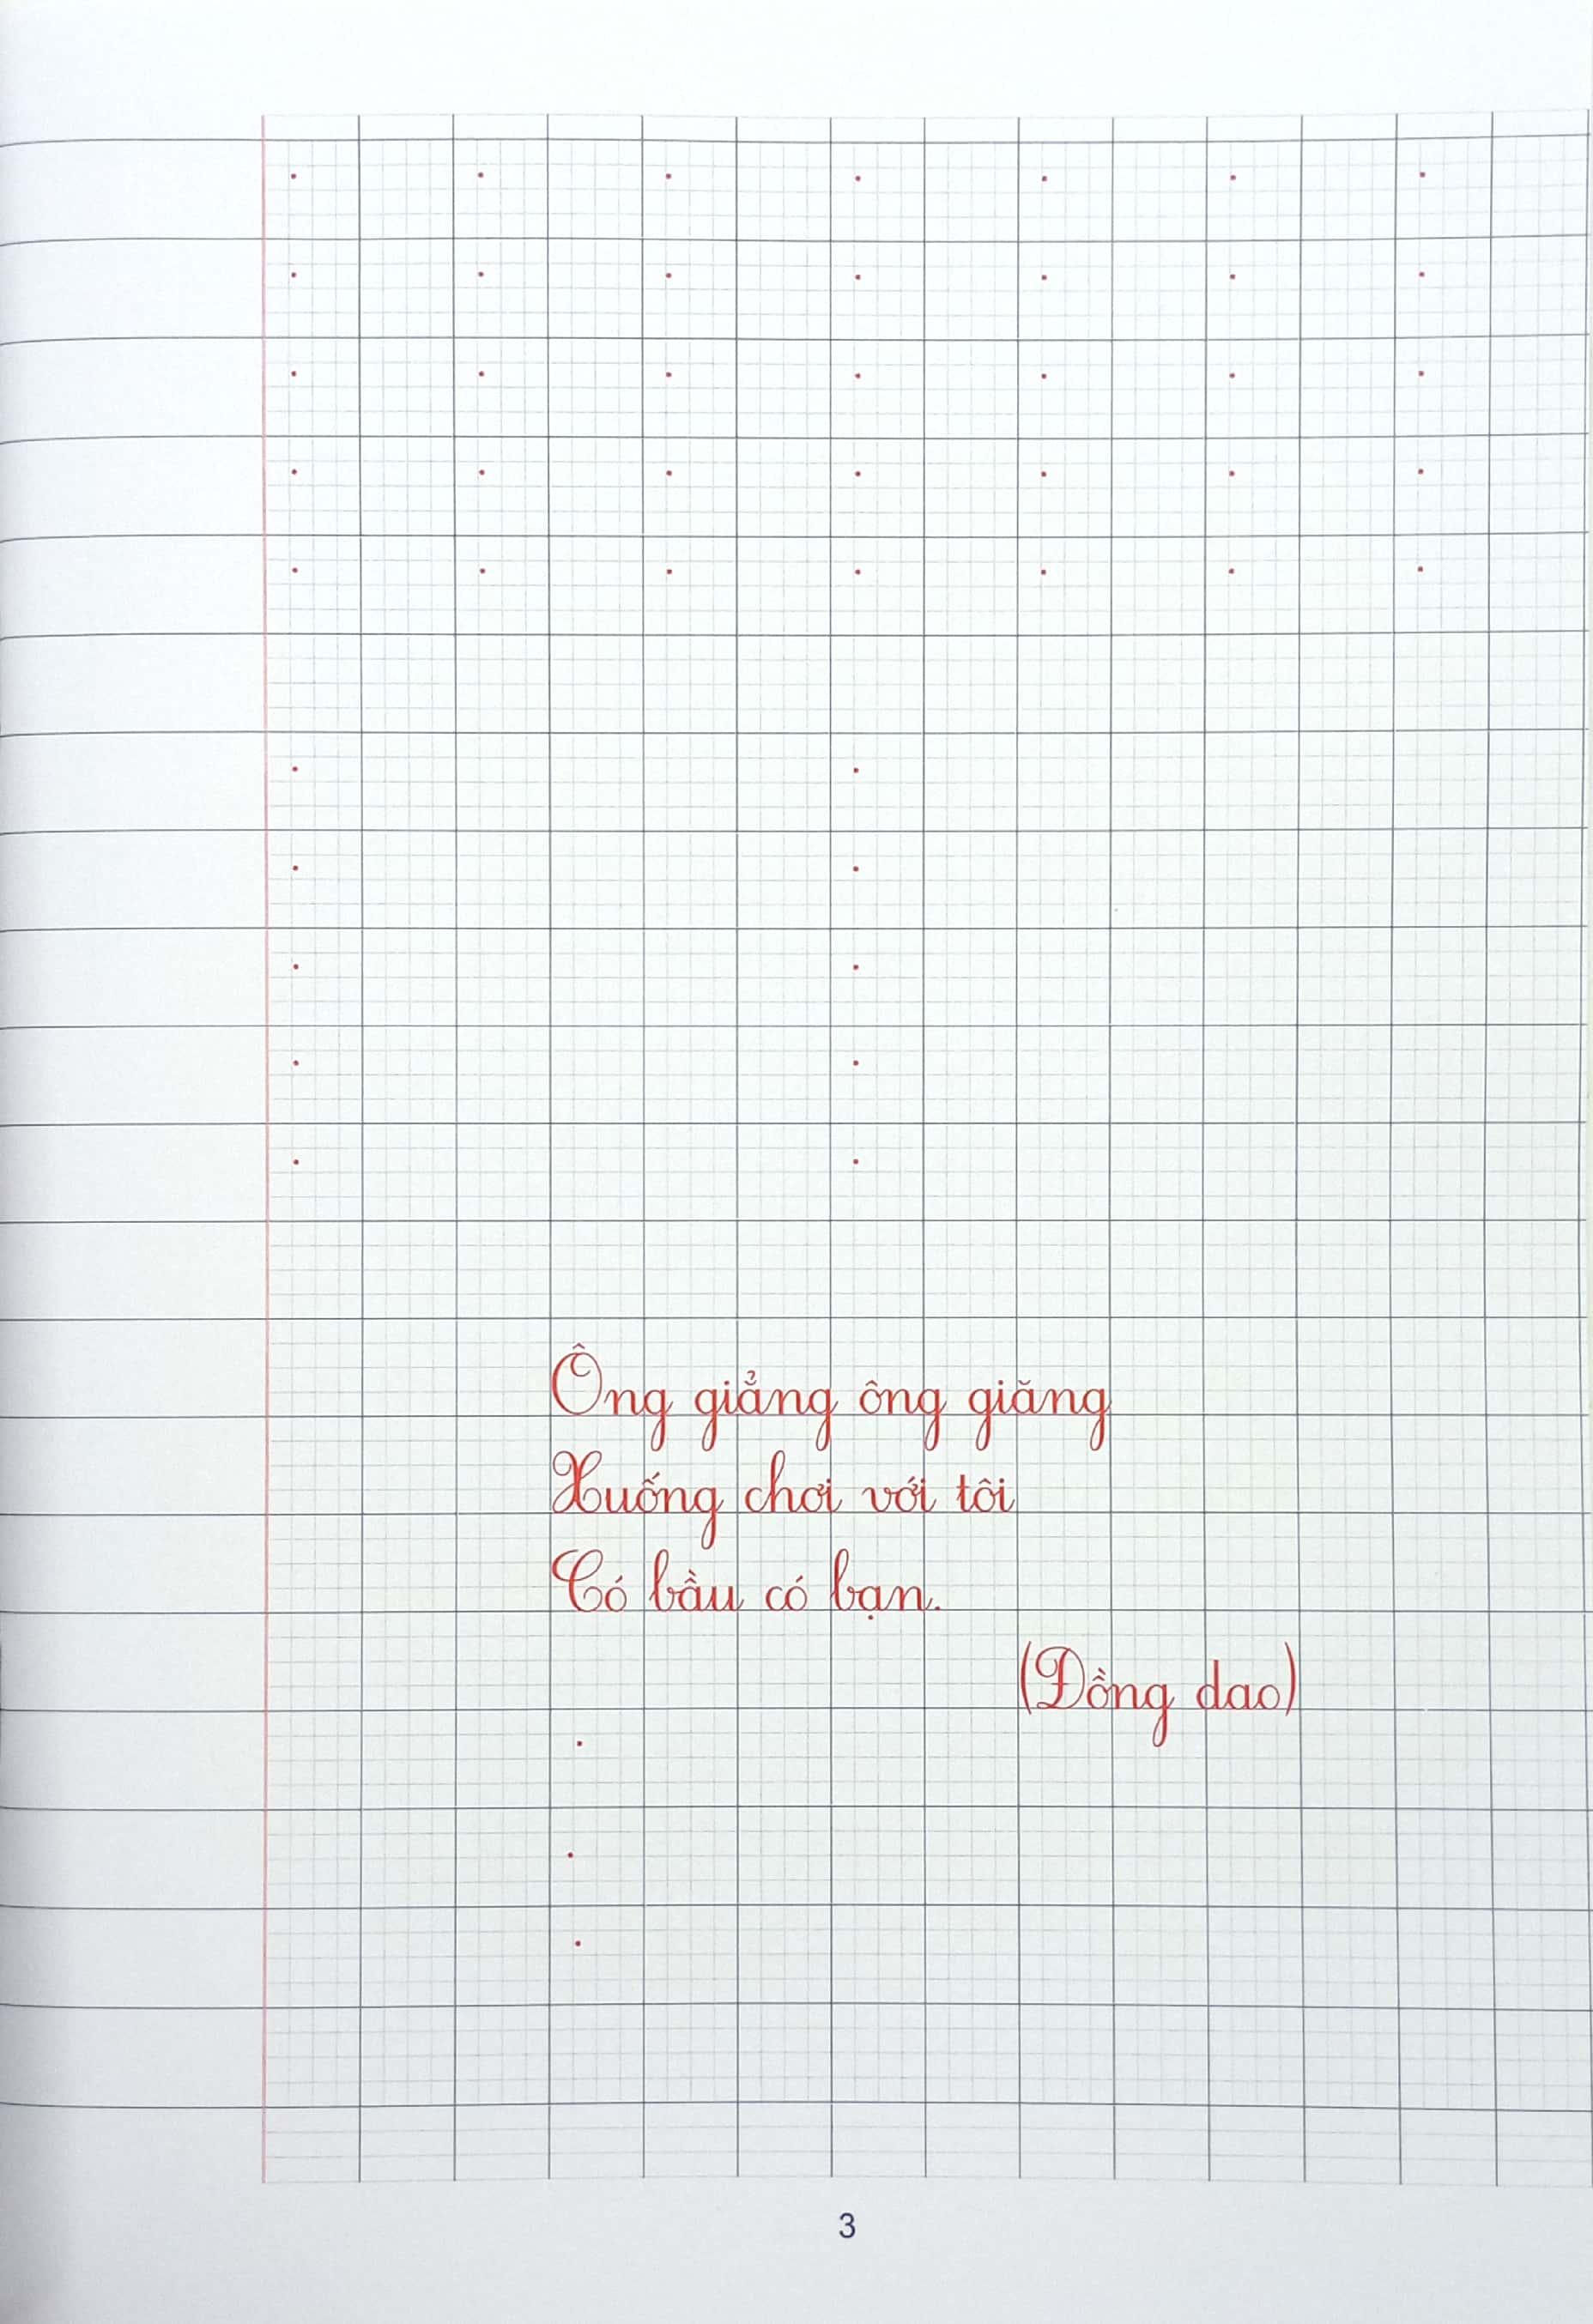 Ông giẳng ông giăng
Xuống chơi với tôi
Có bầu có bạn.
(Đồng dao)
3